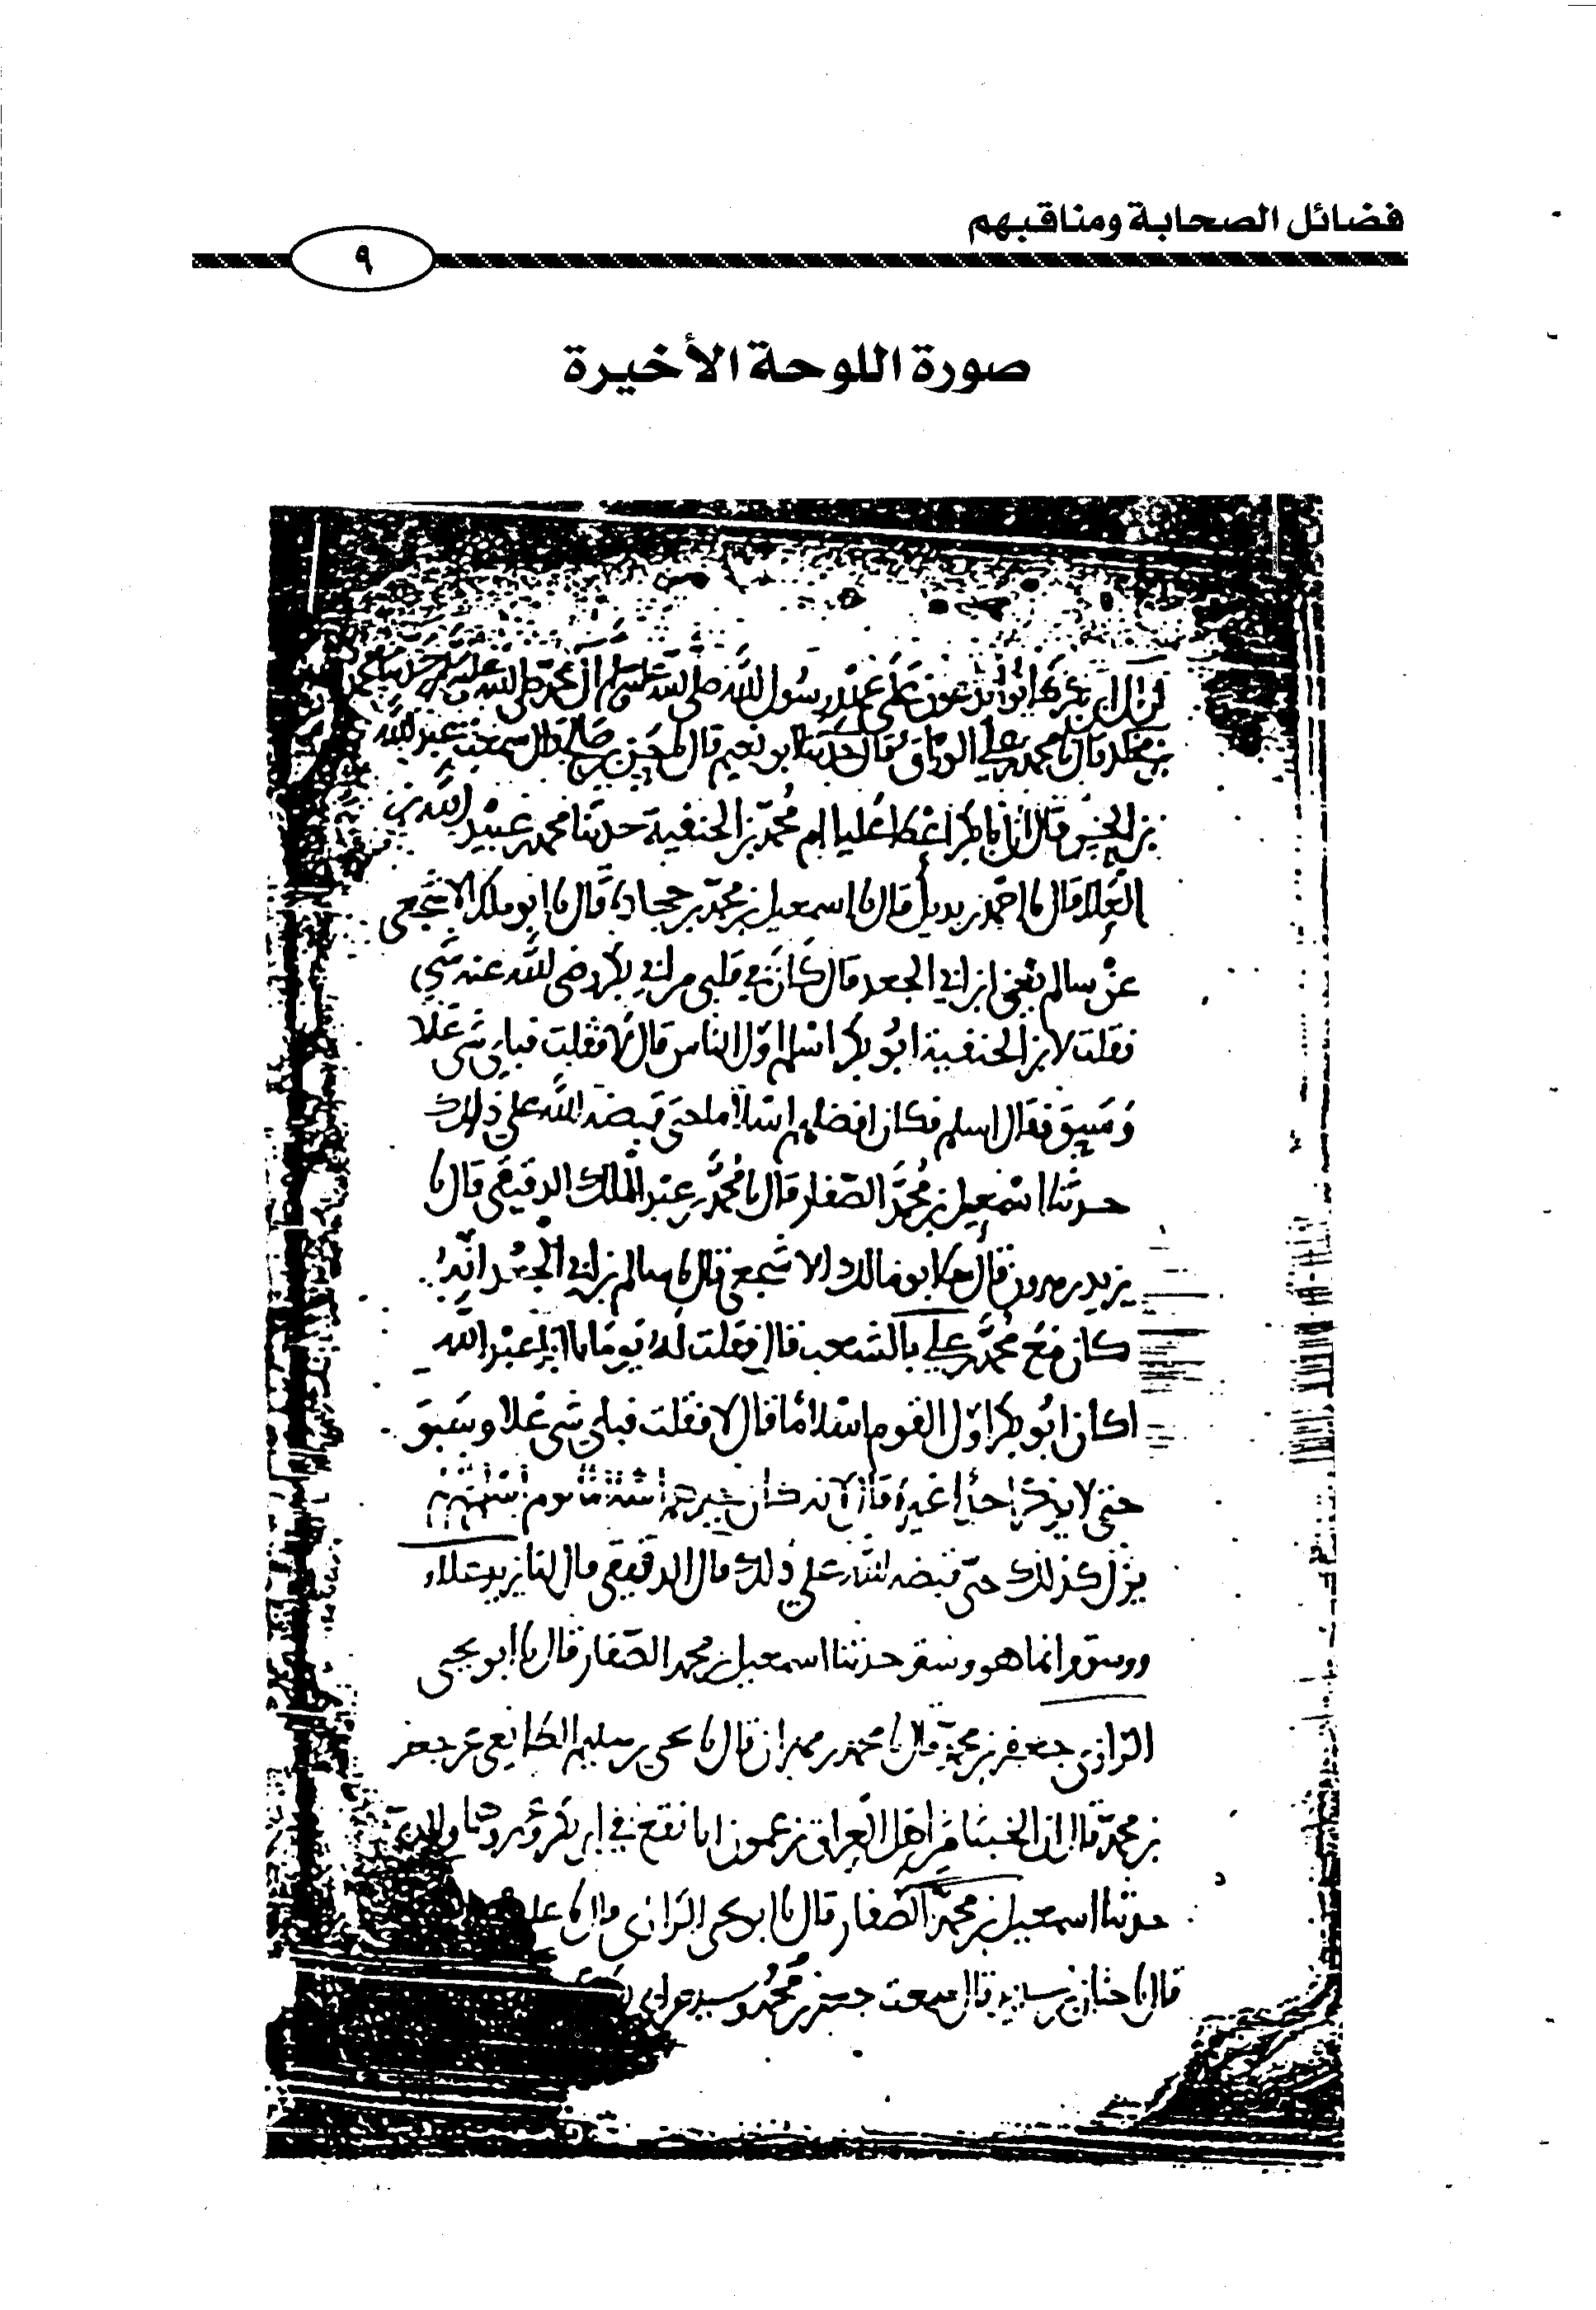 فضائل الصحابة ومناقبهم
٩
صورة اللوحة الأخيرة
رسول الله صلى الله عليه وسلم آل محمد صلى الله عليه وسلم
بن مخلد قال نا محمد بن علي الوراق قال حدثنا ابو نعيم قال قال سمعت عبد الله
بن الحسن قال ان ابا بكر اعطا عليا ام محمد بن الحنفية حدثنا محمد بن عبيد الله بن
العلا قال نا احمد بن بديل قال نا اسمعيل بن محمد بن جحادة قال نا ابو ملك الاشجعي
عن سالم يعني ابن ابي الجعد قال كان في قلبي من ابي بكر رضي الله عنه شي
فقلت لابن الحنفية ابو بكر اسلم اول الناس قال لا فقلت فباي شي علا
وسبق فقال اسلم فكان افضلهم اسلاما حتى قبضه الله على ذلك
حدثنا اسمعيل بن محمد الصفار قال نا محمد بن عبد الملك الدقيقي قال نا
يزيد بن هرون قال نا ابو مالك الاشجعي قال نا سالم بن ابي الجعد انه
كان مع محمد بن علي بالشعب قال فقلت له يوما يا ابا عبد الله
اكان ابو بكر اول القوم اسلاما قال لا فقلت فباي شي علا وسبق
حتى لا يذكر احدا غيره قال انه كان خيرهم اسلاما يوم اسلم لم
يزل كذلك حتى قبضه الله على ذلك قال الدقيقي قال لنا يزيد علا
ووسق وانما هو وسبق حدثنا اسمعيل بن محمد الصفار قال نا ابو يحيى
الرازي جعفر بن محمد قال نا محمد بن مهران قال نا يحيى بن سليم الطايفي عن جعفر
بن محمد قال ان الخبثا من اهل العراق يزعمون انا نقع في ابي بكر وعمر وهما والداي
حدثنا اسمعيل بن محمد الصفار قال نا ابو يحيى الرازي قال نا علي
قال نا حنان بن سدير قال سمعت جعفر بن محمد وسيل عن ابي بكر